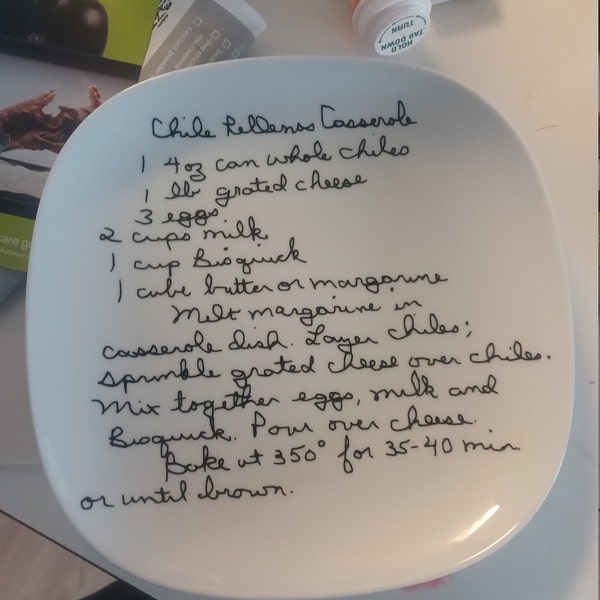 HOLD
TAB DOWN
TURN
Chile Rellenos Casserole
1 4 oz can whole chiles
1 lb grated cheese
3 eggs
2 cups milk
1 cup Bisquick
1 cube butter or margarine
Melt margarine in
casserole dish. Layer chiles;
sprinkle grated cheese over chiles.
Mix together eggs, milk and
Bisquick. Pour over cheese.
Bake at 350° for 35-40 min.
or until brown.